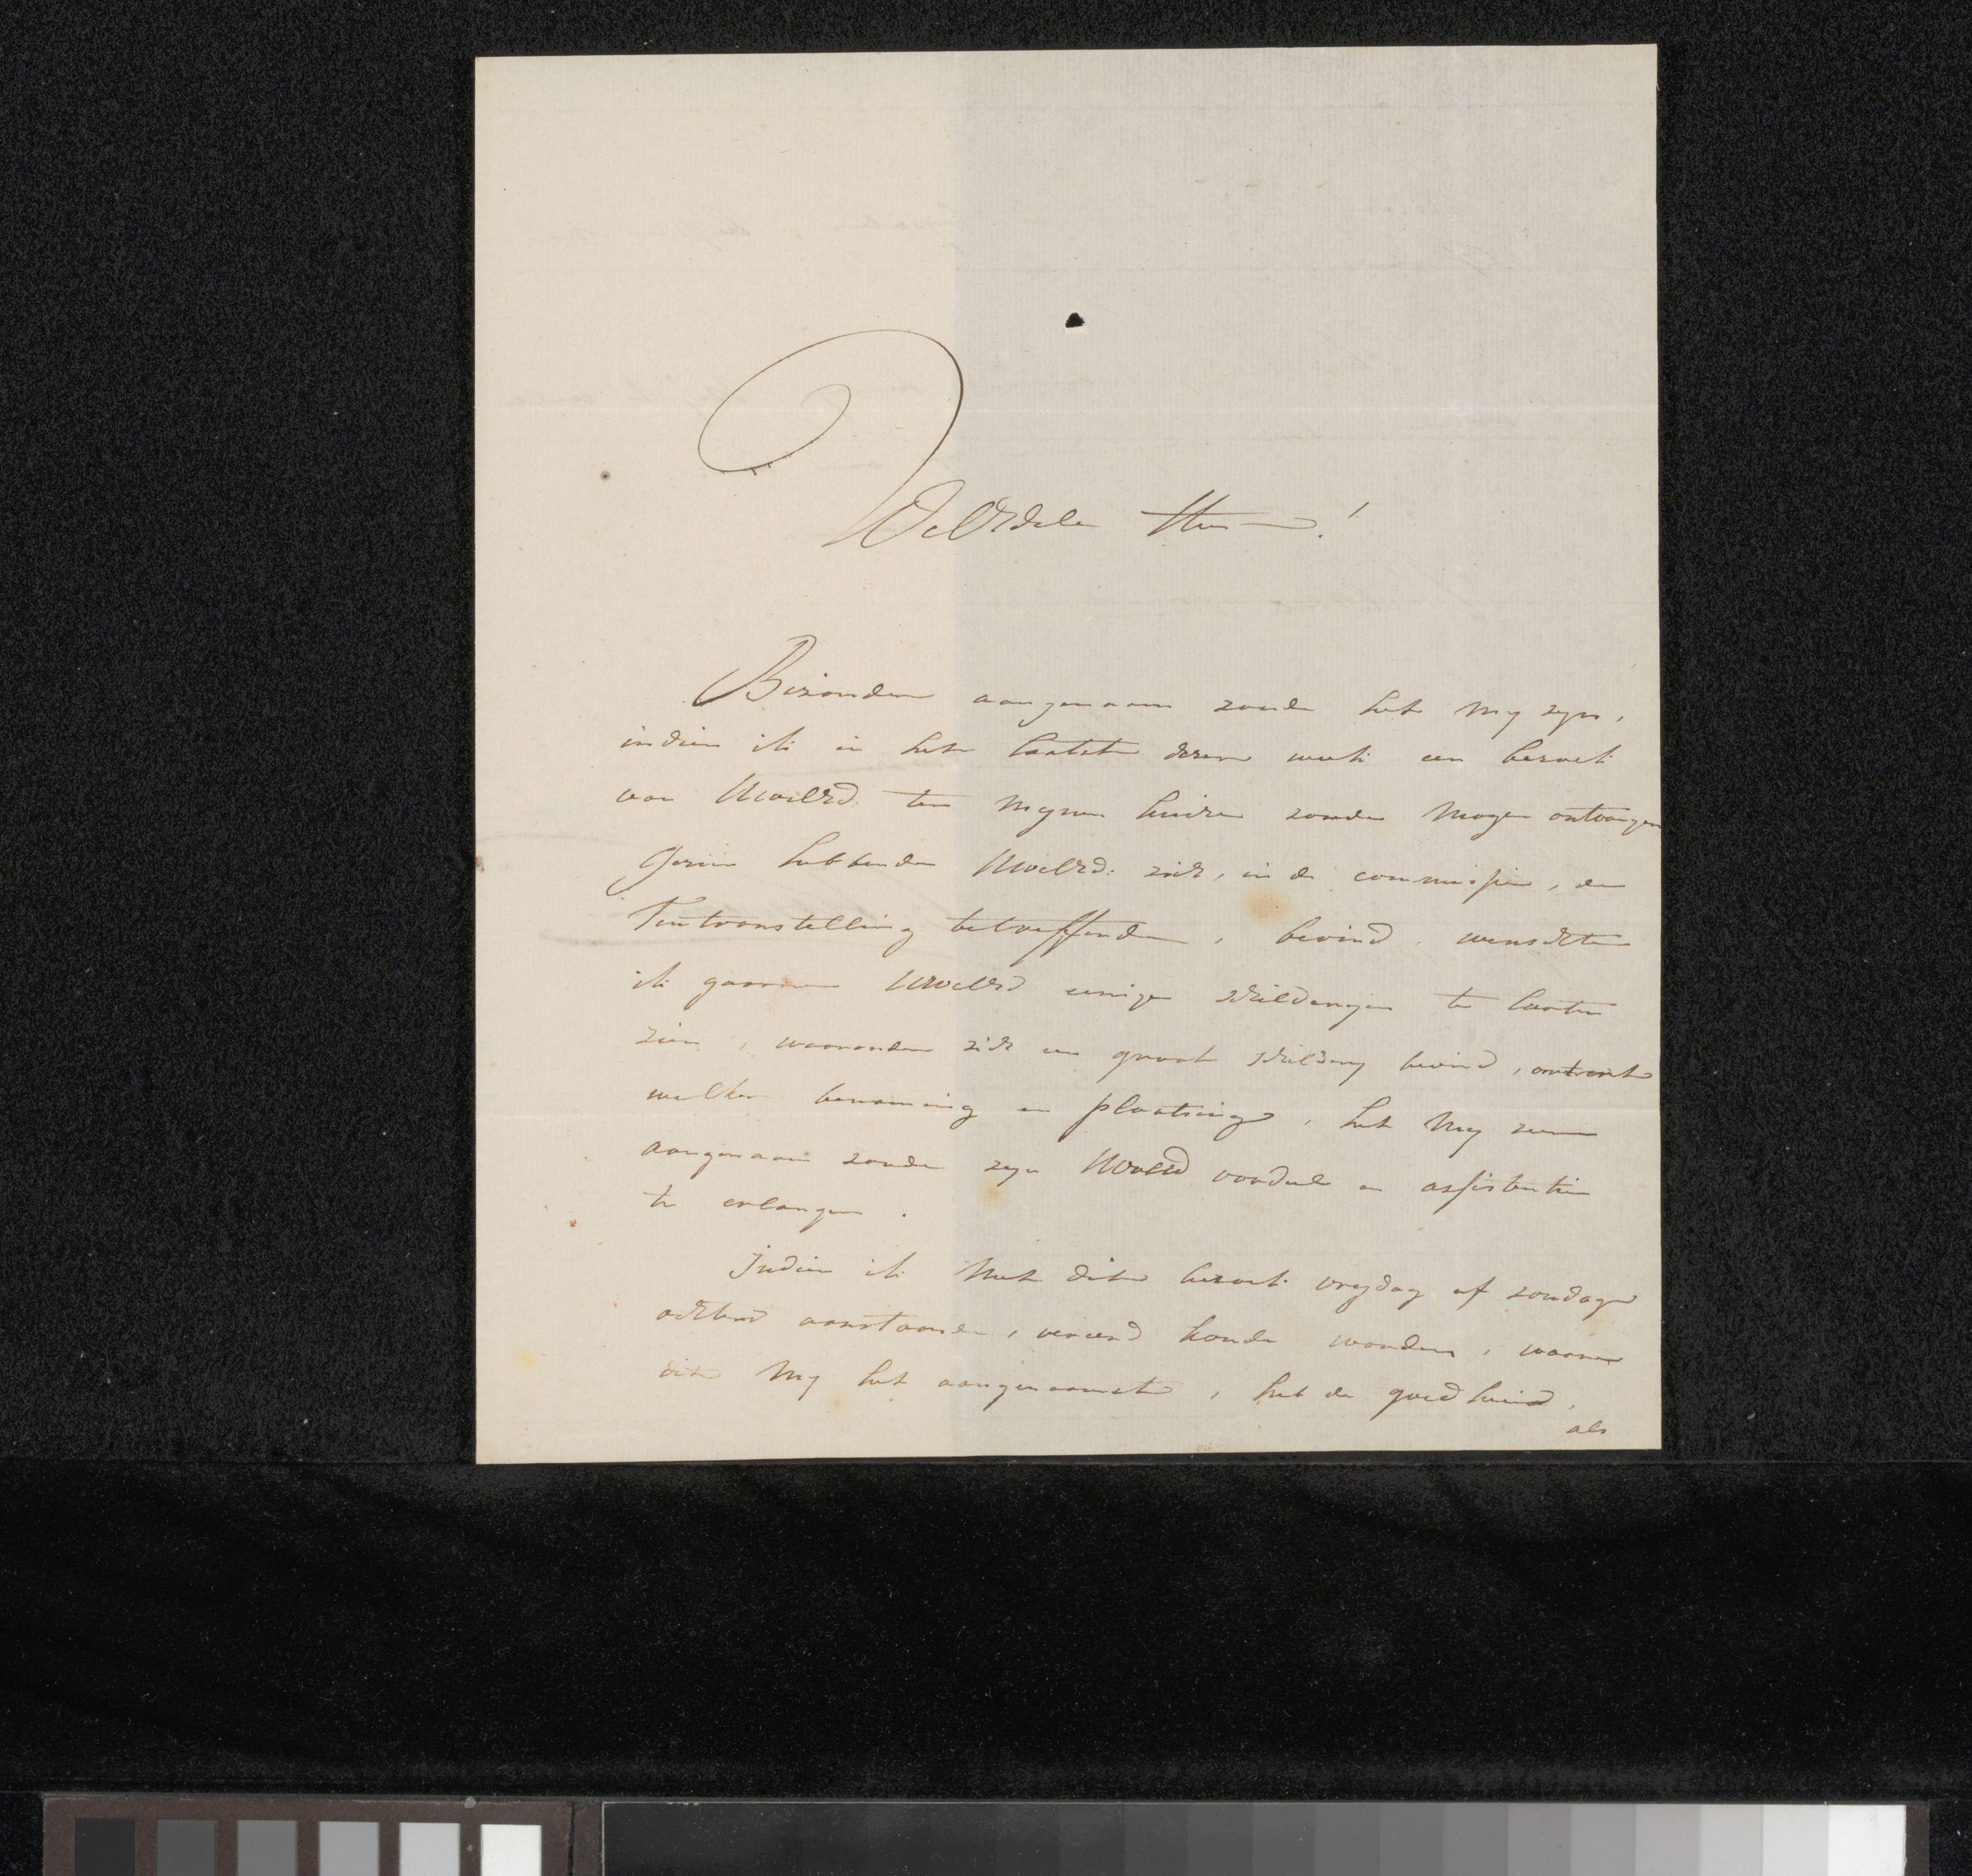 WelEdele Heer!
Bizonder aangenaam zoude het my zyn,
indien ik in het laatst dezer week een bezoek
van UwelEd. ten mynen huize zoude mogen ontvangen
hebbende UwelEd: zich, in de commissie, de
Tentoonstelling betreffende, bevind, wenschte
ik gaarne UwelEd eenige schilderyen te laaten
zien, waaronder zich een groot schildery bevind, omtrent
welker benaming en plaatsing, het my zeer
aangenaam zoude zyn UwelEd oordeel en assistentie
te erlangen.
Indien ik met dit bezoek vrydag of zondag
ochtend aanstaande, vereerd konde worden, waare
dit my het aangenaamste, heb de goedheid,
als